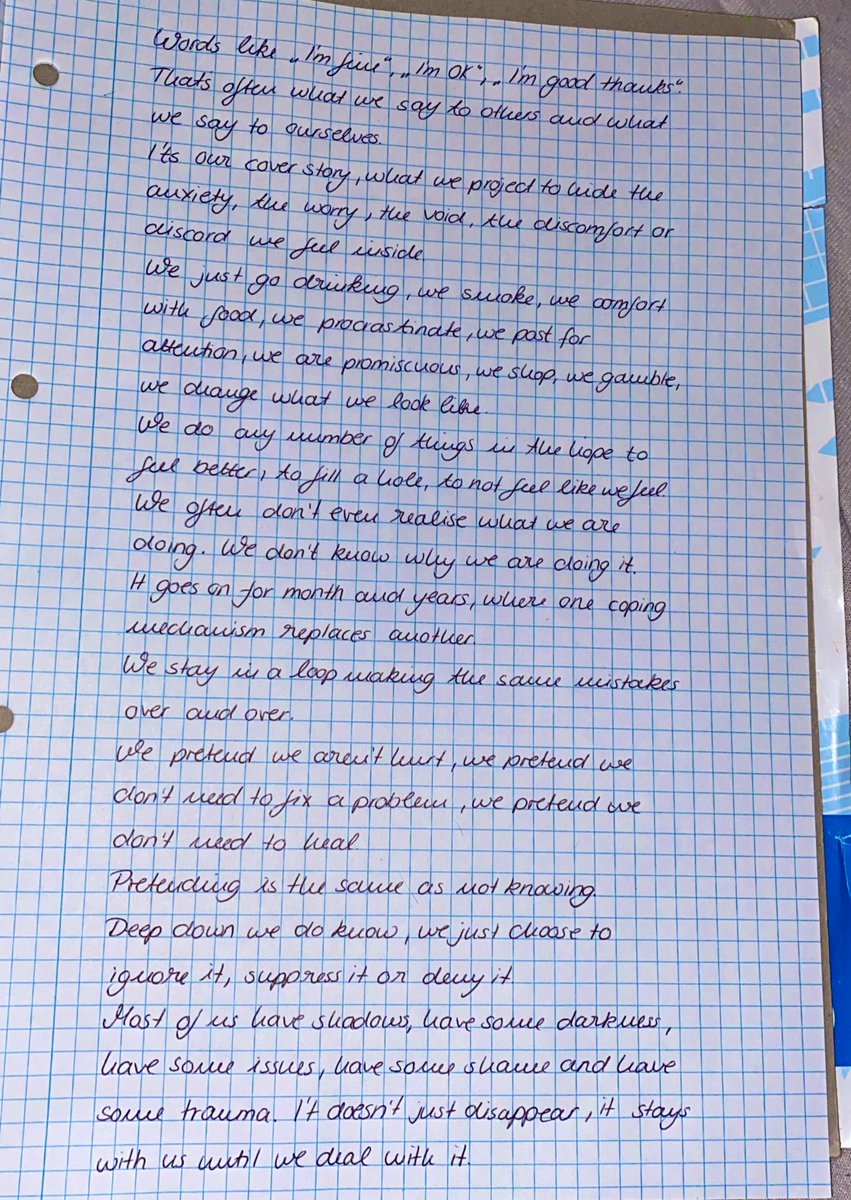 Words like „I'm fine", „I'm OK", „I'm good thanks".
Thats often what we say to others and what
we say to ourselves.
I'ts our cover story, what we project to hide the
anxiety, the worry, the void, the discomfort or
discord we feel inside
We just go drinking, we smoke, we comfort
with food, we procrastinate, we post for
attention, we are promiscuous, we shop, we gamble,
we change what we look like.
We do any number of things in the hope to
feel better, to fill a hole, to not feel like we feel.
We often don't even realise what we are
doing. We don't know why we are doing it.
It goes on for month and years, where one coping
mechanism replaces another.
We stay in a loop making the same mistakes
over and over.
We pretend we aren't hurt, we pretend we
don't need to fix a problem, we pretend we
don't need to heal.
Pretending is the same as not knowing.
Deep down we do know, we just choose to
ignore it, suppress it or deny it
Most of us have shadows, have some darkness,
have some issues, have some shame and have
some trauma. I't doesn't just disappear, it stays
with us until we deal with it.